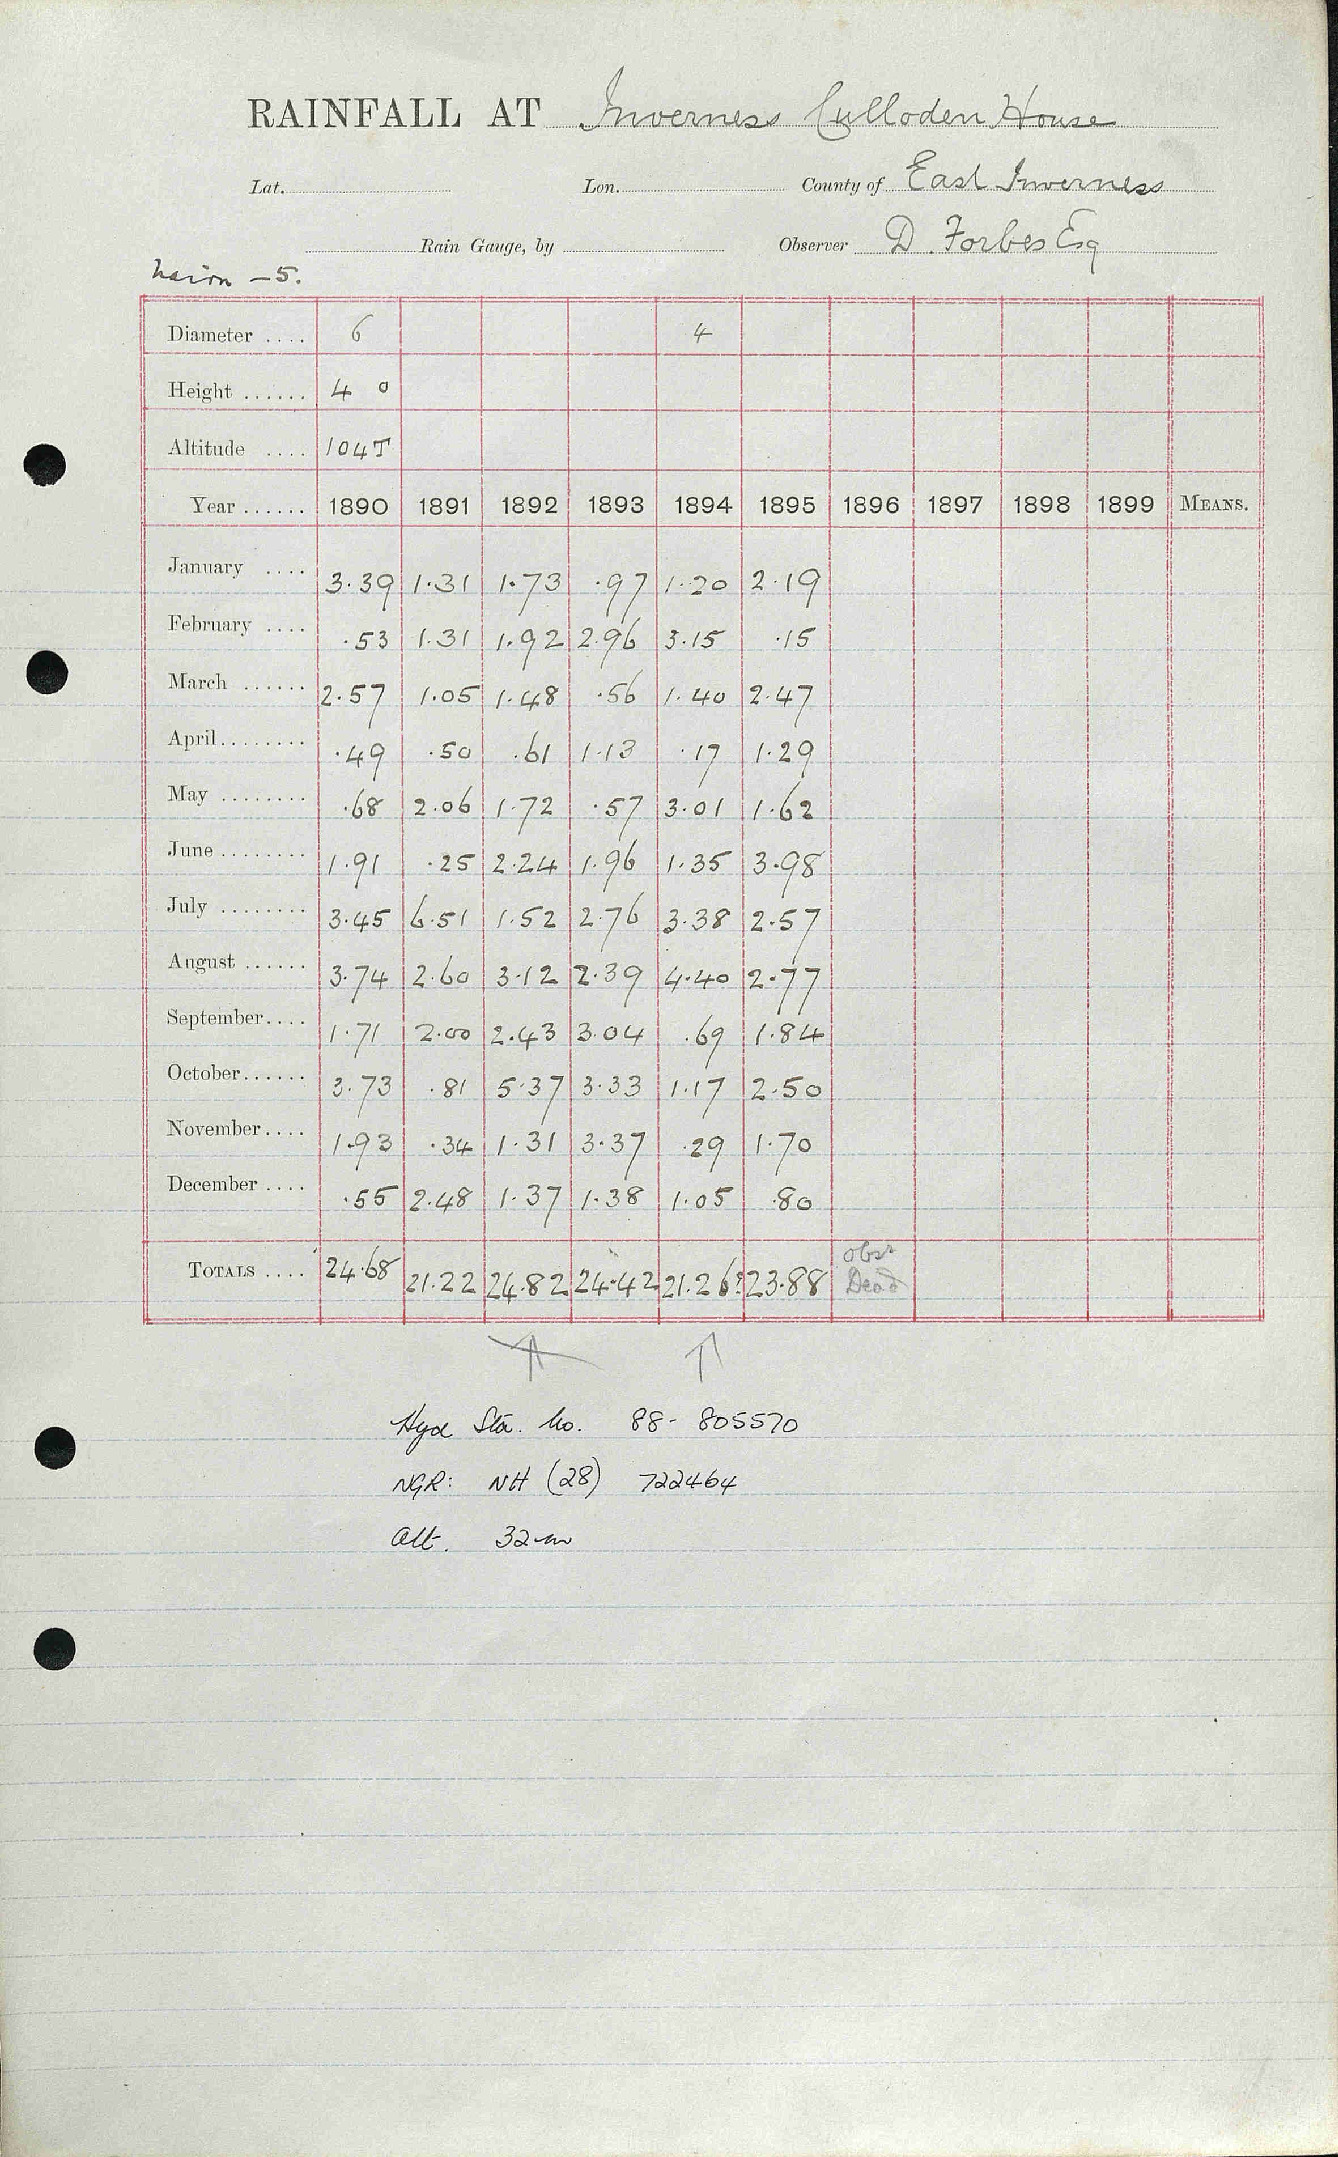 RAINFALL AT Inverness Culloden House
Lat. Lon. County of East Inverness
Rain Gauge, by Observer D. Forbes Esq
Nairn - 5.
Diameter .... 6 4
Height ...... 4 0
Altitude .... 104T
Year ...... 1890 1891 1892 1893 1894 1895 1896 1897 1898 1899 MEANS.
January .... 3.39 1.31 1.73 .97 1.20 2.19
February .... .53 1.31 1.92 2.96 3.15 .15
March ...... 2.57 1.05 1.48 .56 1.40 2.47
April........ .49 .50 .61 1.13 .17 1.29
May ........ .68 2.06 1.72 .57 3.01 1.62
June ........ 1.91 .25 2.24 1.96 1.35 3.98
July ........ 3.45 6.51 1.52 2.76 3.38 2.57
August ...... 3.74 2.60 3.12 2.39 4.40 2.77
September.... 1.71 2.00 2.43 3.04 .69 1.84
October...... 3.73 .81 5.37 3.33 1.17 2.50
November.... 1.93 .34 1.31 3.37 .29 1.70
December .... .55 2.48 1.37 1.38 1.05 .80
TOTALS .... 24.68 21.22 24.82 24.42 21.26? 23.88 obsr Dead
Hyd Sta. No. 88- 805570
NGR: NH (28) 722464
Alt. 32m